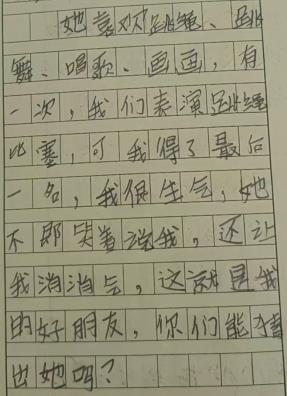 她喜欢跳绳、跳
舞、唱歌、画画，有
一次，我们表演跳绳
比赛，可我得了最后
一名，我很生气，她
不即笑着说我，还让
我消消气，这就是我
的好朋友，你们能猜
出她吗？